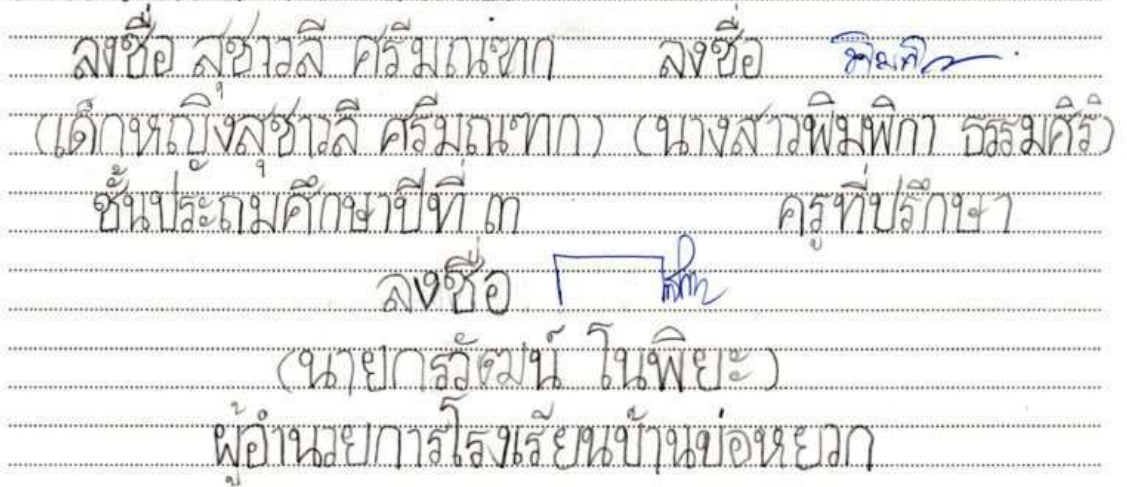 ลงชื่อ สุชาวลี ศรีมณฑก ลงชื่อ พิมพิกา
(เด็กหญิงสุชาวลี ศรีมณฑก) (นางสาวพิมพิกา ธรรมศิริ)
ชั้นประถมศึกษาปีที่ ๓ ครูที่ปรึกษา
ลงชื่อ
(นายกรวัฒน์ โนพิยะ)
ผู้อำนวยการโรงเรียนบ้านบ่อหยวก